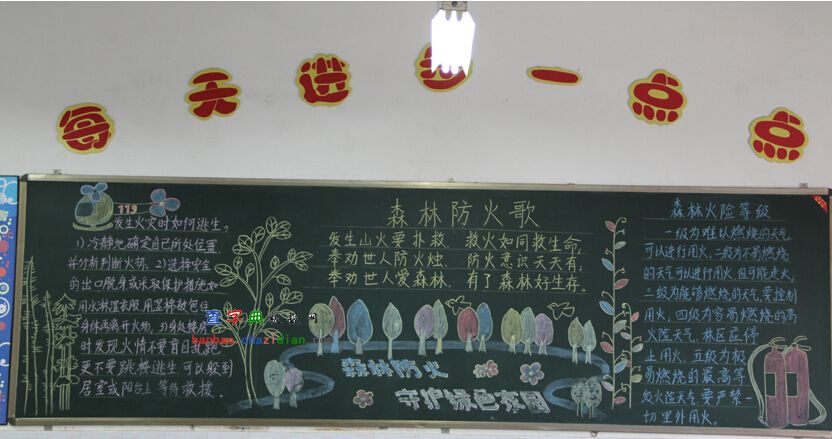 每天进步一点点
119
发生火灾时如何逃生。
1)冷静地确定自己所处位置
并分析判断火势, 2)选择安全
的出口脱身或采取保护措施如
用水淋湿衣服用湿棉被包住
身体再离开火场, 3)身处楼房
时发现火情不要盲目乱跑
更不要跳楼逃生可以躲到
居室或阳台上等待救援。
森林防火歌
发生山火要扑救, 救火如同救生命,
奉劝世人防火烛, 防火意识天天有,
奉劝世人爱森林, 有了森林好生存。
森林防火
守护绿色家园
森林火险等级
一级为难以燃烧的天气
可以进行用火, 二级为不易燃烧
的天气可以进行用火, 但可能走火,
三级为能够燃烧的天气要控制
用火, 四级为容易燃烧的高
火险天气, 林区应停
止用火, 五级为极
易燃烧的最高等
级火险天气要严禁一
切里外用火。
查字典教板网
banbao.chazidian.com